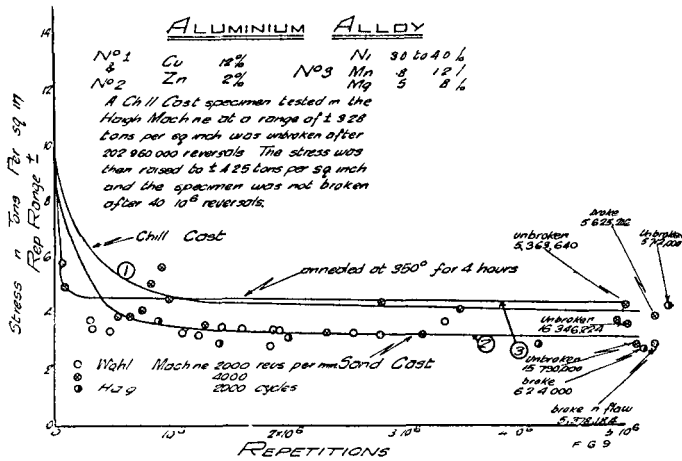 ALUMINIUM ALLOY
Nº1 & Nº2 Cu 12% Zn 2%
Nº3 Ni 30 to 40 % Mn 8 12 % Mg 5 8 %
A Chill Cast specimen tested in the
Haigh Machine at a range of ± 928
tons per sq inch was unbroken after
202 960 000 reversals The stress was
then raised to ± 425 tons per sq inch
and the specimen was not broken
after 40 10⁶ reversals.
Stress n Tons Per sq in
Rep Range ±
14
12
10
8
6
4
2
Chill Cast
1
annealed at 350° for 4 hours
unbroken
5,369,640
broke
5,625,
Unbroken
Unbroken
16 346,224
2
3
Sand Cast
Unbroken
15 790,000
broke
624000
broke n flaw
Wohl Machine 2000 revs per min
4000
Hag 2000 cycles
0
10⁶
2×10⁶
3 10⁶
4 10⁶
5 10⁶
REPETITIONS
F G 9